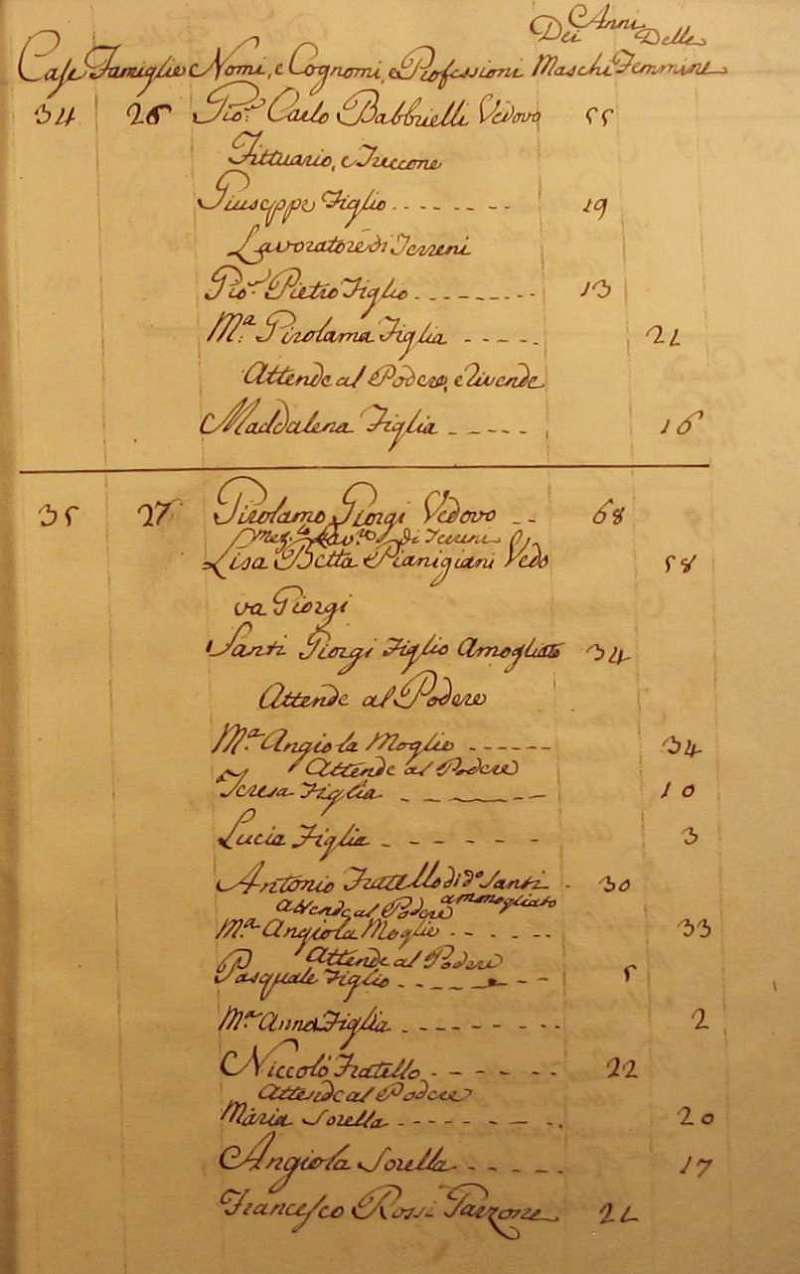 Dei Anni Delle
Case Famiglie Nomi, e Cognomi, e Professioni Maschi Femmine
34 26 Gio: Carlo Vedovo 55
Fittuario, e
Giuseppe Figlio 19
Lavoratore di Terreni
Gio: Pietro Figlio 13
M.a Girolama Figlia 21
Attende al Podere, e
Maddalena Figlia 16
35 27 Girolamo Giorgi Vedovo 68
di Terreni
Lisa Betta Pianigiani Vedo 58
va Giorgi
Santi Giorgi Figlio Amogliato 34
Attende al Podere
M.a Angiola Moglie 34
Attende al Podere
Teresa Figlia 10
Lucia Figlia 3
Antonio Fratello di d.o Santi 30
Attende al Podere ammogliato
M.a Angiola Moglie 33
Attende al Podere
Pasquale Figlio 5
M.a Anna Figlia 2
Niccolò Fratello 22
Attende al Podere
Maria Sorella 20
Angiola Sorella 17
Francesco Rossi Garzone 21